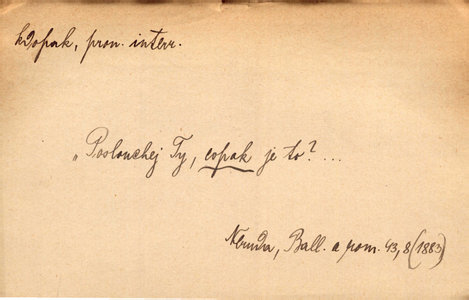 kdopak, pron. interr.
„Poslouchej Ty, copak je to? ...
Neruda, Ball. a rom. 43, 8 (1883)